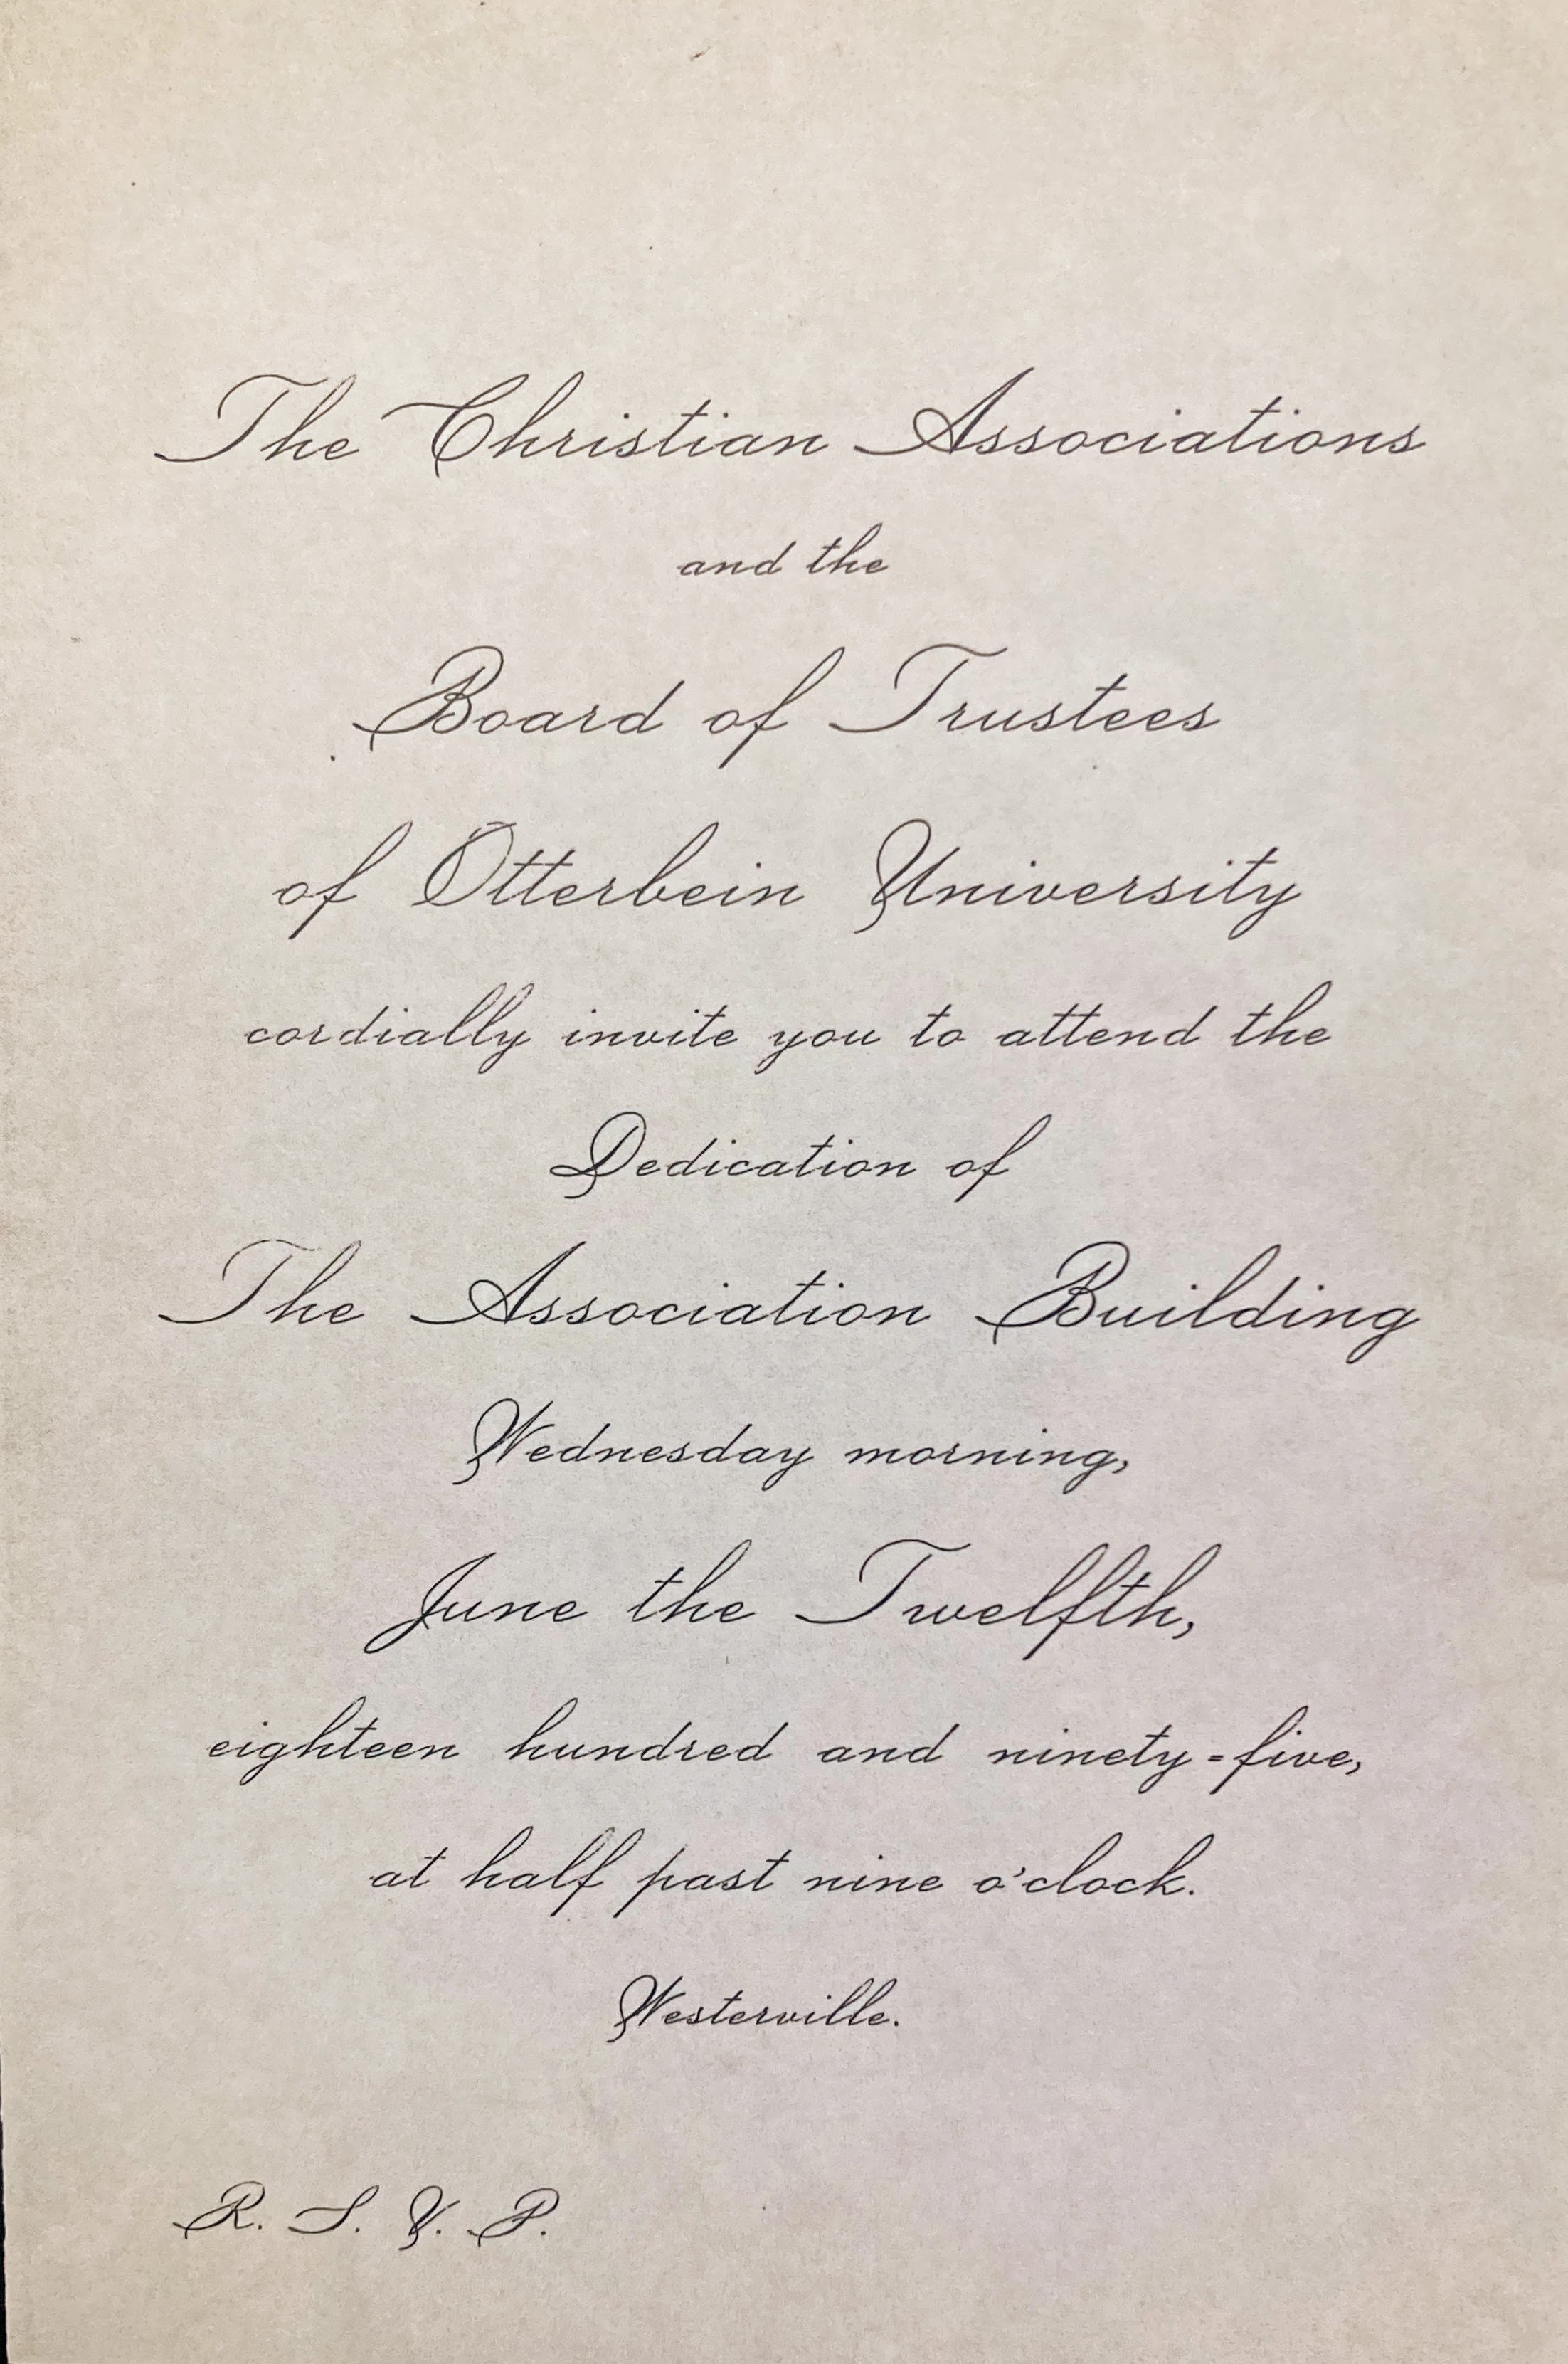 The Christian Associations
and the
Board of Trustees
of Otterbein University
cordially invite you to attend the
Dedication of
The Association Building
Wednesday morning,
June the Twelfth,
eighteen hundred and ninety-five,
at half past nine o'clock.
Westerville.
R. S. V. P.